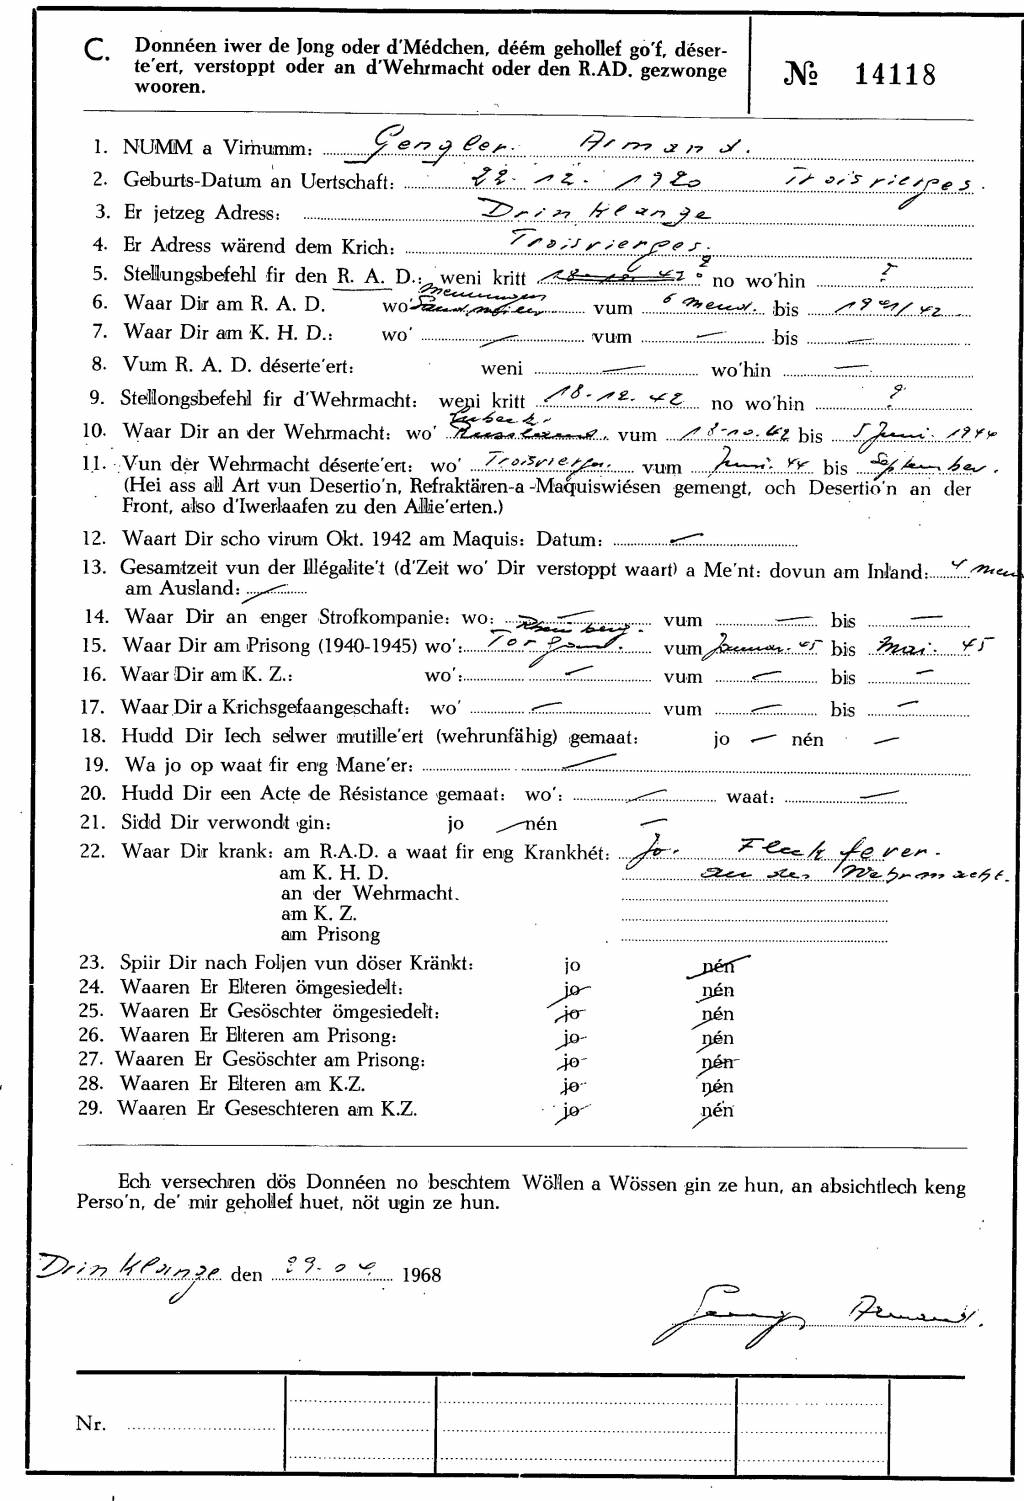 C. Donnéen iwer de Jong oder d'Médchen, déém gehollef go'f, déser-
te'ert, verstoppt oder an d'Wehrmacht oder den R.AD. gezwonge
wooren.
№ 14118
1. NUMM a Virnumm: Gengler. Armand.
2. Geburts-Datum an Uertschaft: 22. 12. 1920 Troisvierges.
3. Er jetzeg Adress: Drinklange
4. Er Adress wärend dem Krich: Troisvierges.
5. Stellungsbefehl fir den R. A. D.: weni kritt 18-10-42 ? no wo'hin ?
6. Waar Dir am R. A. D. wo' vum 6 mend. bis 1941/42
7. Waar Dir am K. H. D.: wo' — vum — bis —
8. Vum R. A. D. déserte'ert: weni — wo'hin —
9. Stellongsbefehl fir d'Wehrmacht: weni kritt 18-12-42 no wo'hin ?
Lubeck.
10. Waar Dir an der Wehrmacht: wo' Russland. vum 18-10-42 bis 5 Juni. 1944
11. Vun der Wehrmacht déserte'ert: wo' Troisvierges. vum Juni. 44 bis September.
(Hei ass all Art vun Desertio'n, Refraktären-a -Maquiswiésen gemengt, och Desertio'n an der
Front, also d'Iwerlaafen zu den Allie'erten.)
12. Waart Dir scho virum Okt. 1942 am Maquis: Datum: —
13. Gesamtzeit vun der Illégalite't (d'Zeit wo' Dir verstoppt waart) a Me'nt: dovun am Inland: 4
am Ausland: —
14. Waar Dir an enger Strofkompanie: wo: — vum — bis —
15. Waar Dir am Prisong (1940-1945) wo': Torgau. vum Januar. 45 bis Mai. 45
16. Waar Dir am K. Z.: wo': — vum — bis —
17. Waar Dir a Krichsgefaangeschaft: wo' — vum — bis —
18. Hudd Dir Iech selwer mutille'ert (wehrunfähig) gemaat: jo — nén —
19. Wa jo op waat fir eng Mane'er: —
20. Hudd Dir een Acte de Résistance gemaat: wo': — waat: —
21. Sidd Dir verwondt gin: jo — nén —
22. Waar Dir krank: am R.A.D. a waat fir eng Krankhét: Jo. Fleckfever.
am K. H. D. an der Wehrmacht.
an der Wehrmacht.
am K. Z.
am Prisong
23. Spiir Dir nach Foljen vun döser Kränkt: jo nén
24. Waaren Er Elteren ömgesiedelt: jo nén
25. Waaren Er Gesöschter ömgesiedelt: jo nén
26. Waaren Er Elteren am Prisong: jo nén
27. Waaren Er Gesöschter am Prisong: jo nén
28. Waaren Er Elteren am K.Z. jo nén
29. Waaren Er Geseschteren am K.Z. jo nén
Ech versechren dös Donnéen no beschtem Wöllen a Wössen gin ze hun, an absichtlech keng
Perso'n, de' mir gehollef huet, nöt ugin ze hun.
Drinklange den 29. 04. 1968
Armand.
Nr.